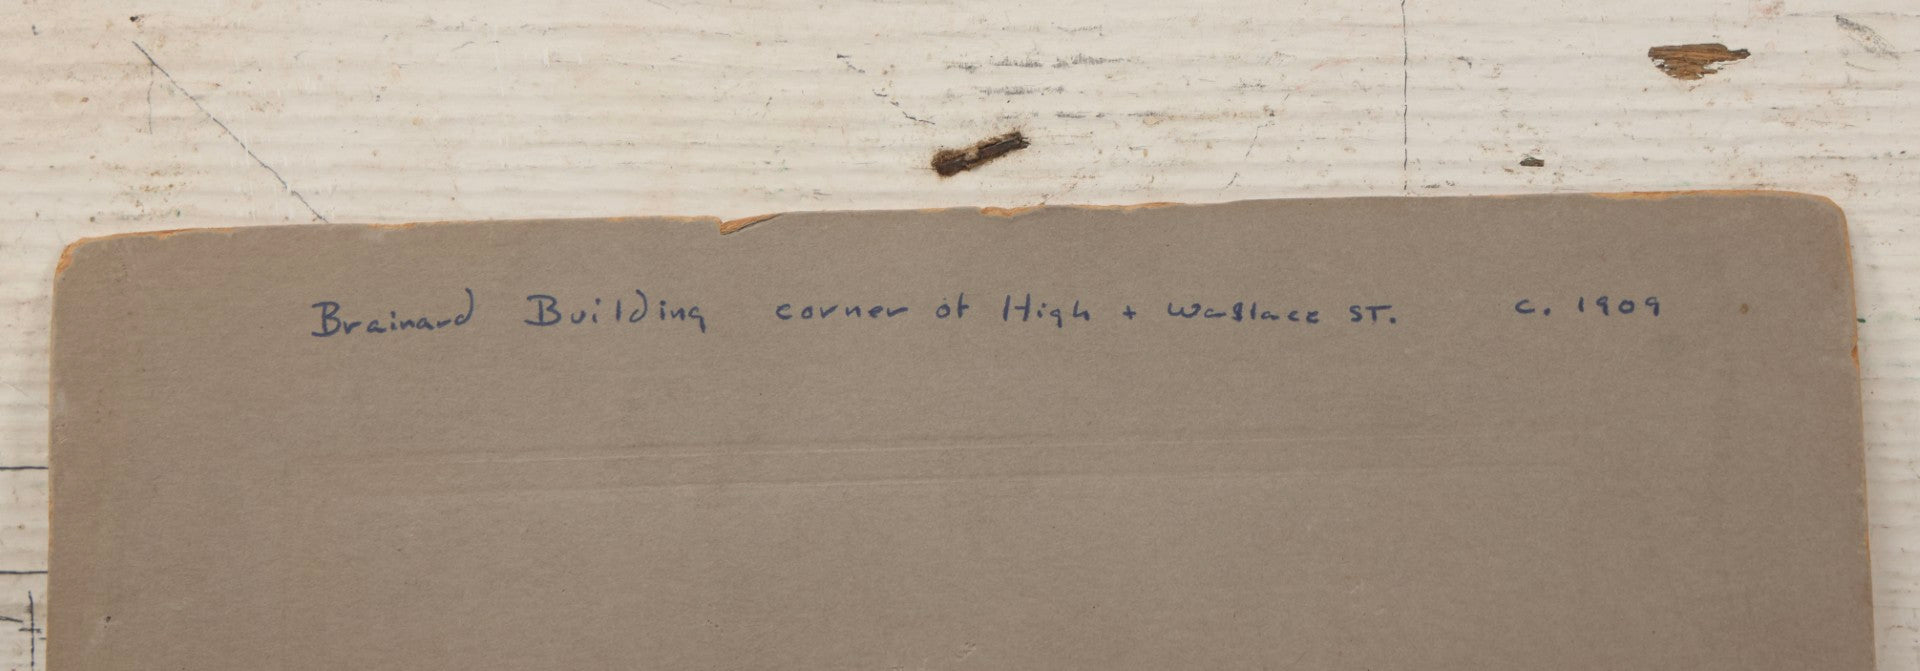 Brainard Building corner of High + Wallace ST. c. 1909